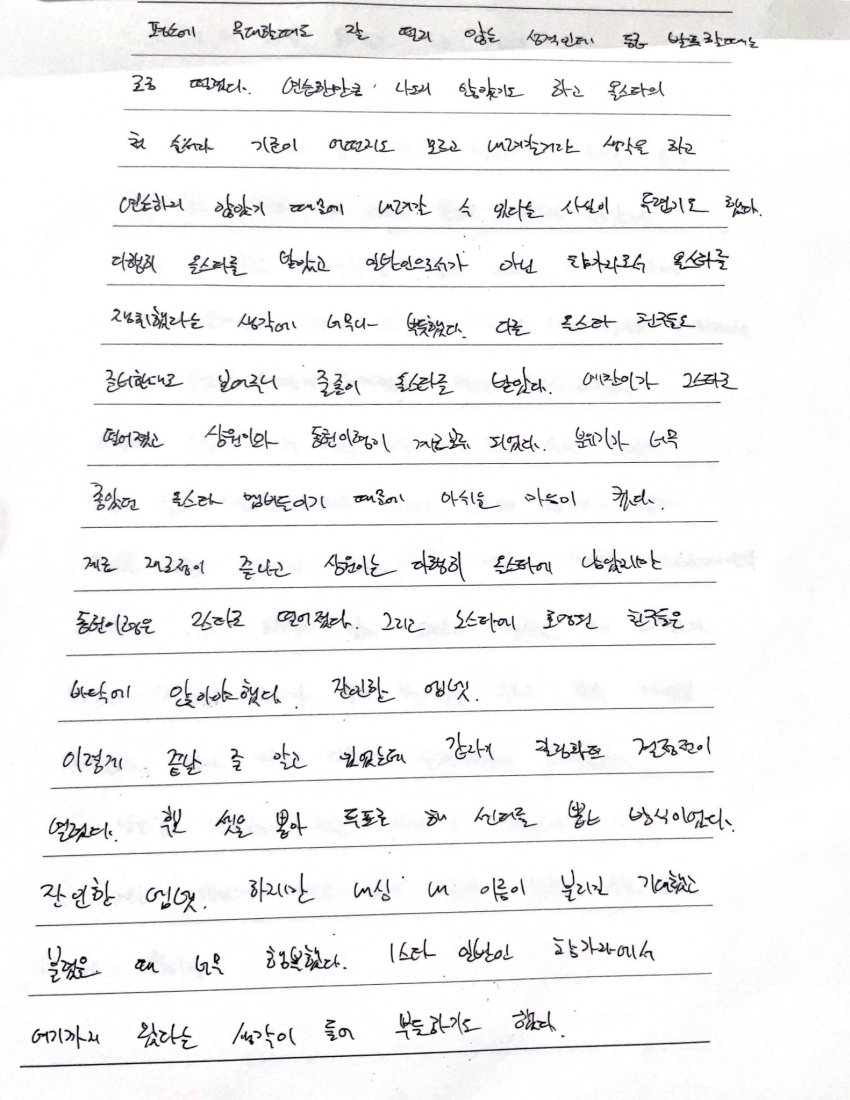 평소에 무대할때도 잘 떨지 않는 성격인데 등급 발표할때는
조금 떨렸다. 연습한만큼 나오지 않았기도 하고 올스타의
기준이 어떤지도 모르고 내려갈거라 생각을 하고
연습하지 않았기 때문에 내려갈 수 있다는 사실이 두렵기도 했다.
다행히 올스타를 받았고 일반인으로서가 아닌 참가자로서 올스타를
쟁취했다는 생각에 너무나 뿌듯했다. 다른 올스타 친구들도
준비한대로 보여주니 줄줄이 올스타를 받았다. 예찬이가 2스타로
떨어졌고 상원이와 동현이형이 재보류 되었다. 분위기가 너무
좋았던 올스타 멤버들이기 때문에 아쉬운 마음이 컸다.
재조정이 끝나고 상원이는 다행히 올스타에 남았지만
동현이형은 2스타로 떨어졌다. 그리고 노스타에 호명된 친구들은
바닥에 앉아야했다. 잔인한 엠넷.
이렇게 끝날 줄 알고 있었는데 갑자기 결정전이
열렸다. 후보 셋을 뽑아 투표로 해 센터를 뽑는 방식이었다.
잔인한 엠넷. 하지만 내심 내 이름이 불리길 기대했고
불렸을 때 너무 행복했다. 1스타 일반인 참가자에서
여기까지 왔다는 생각이 들어 뿌듯하기도 했다.